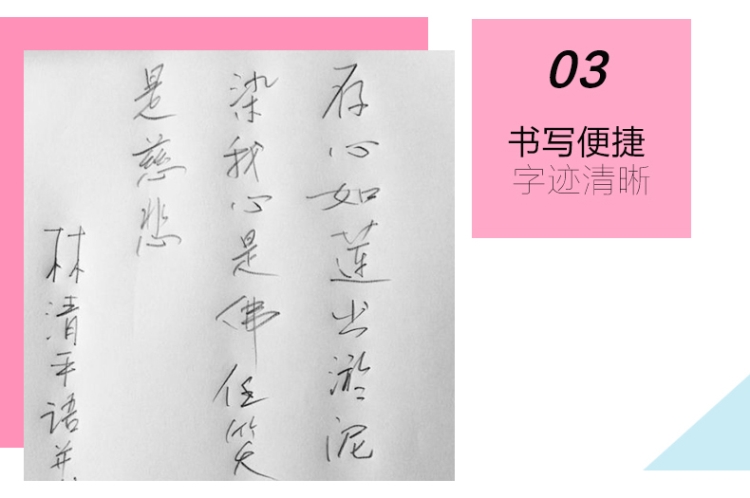 存心如莲出淤泥
染我心是佛任笑
是慈悲
林清平语并
03
书写便捷
字迹清晰